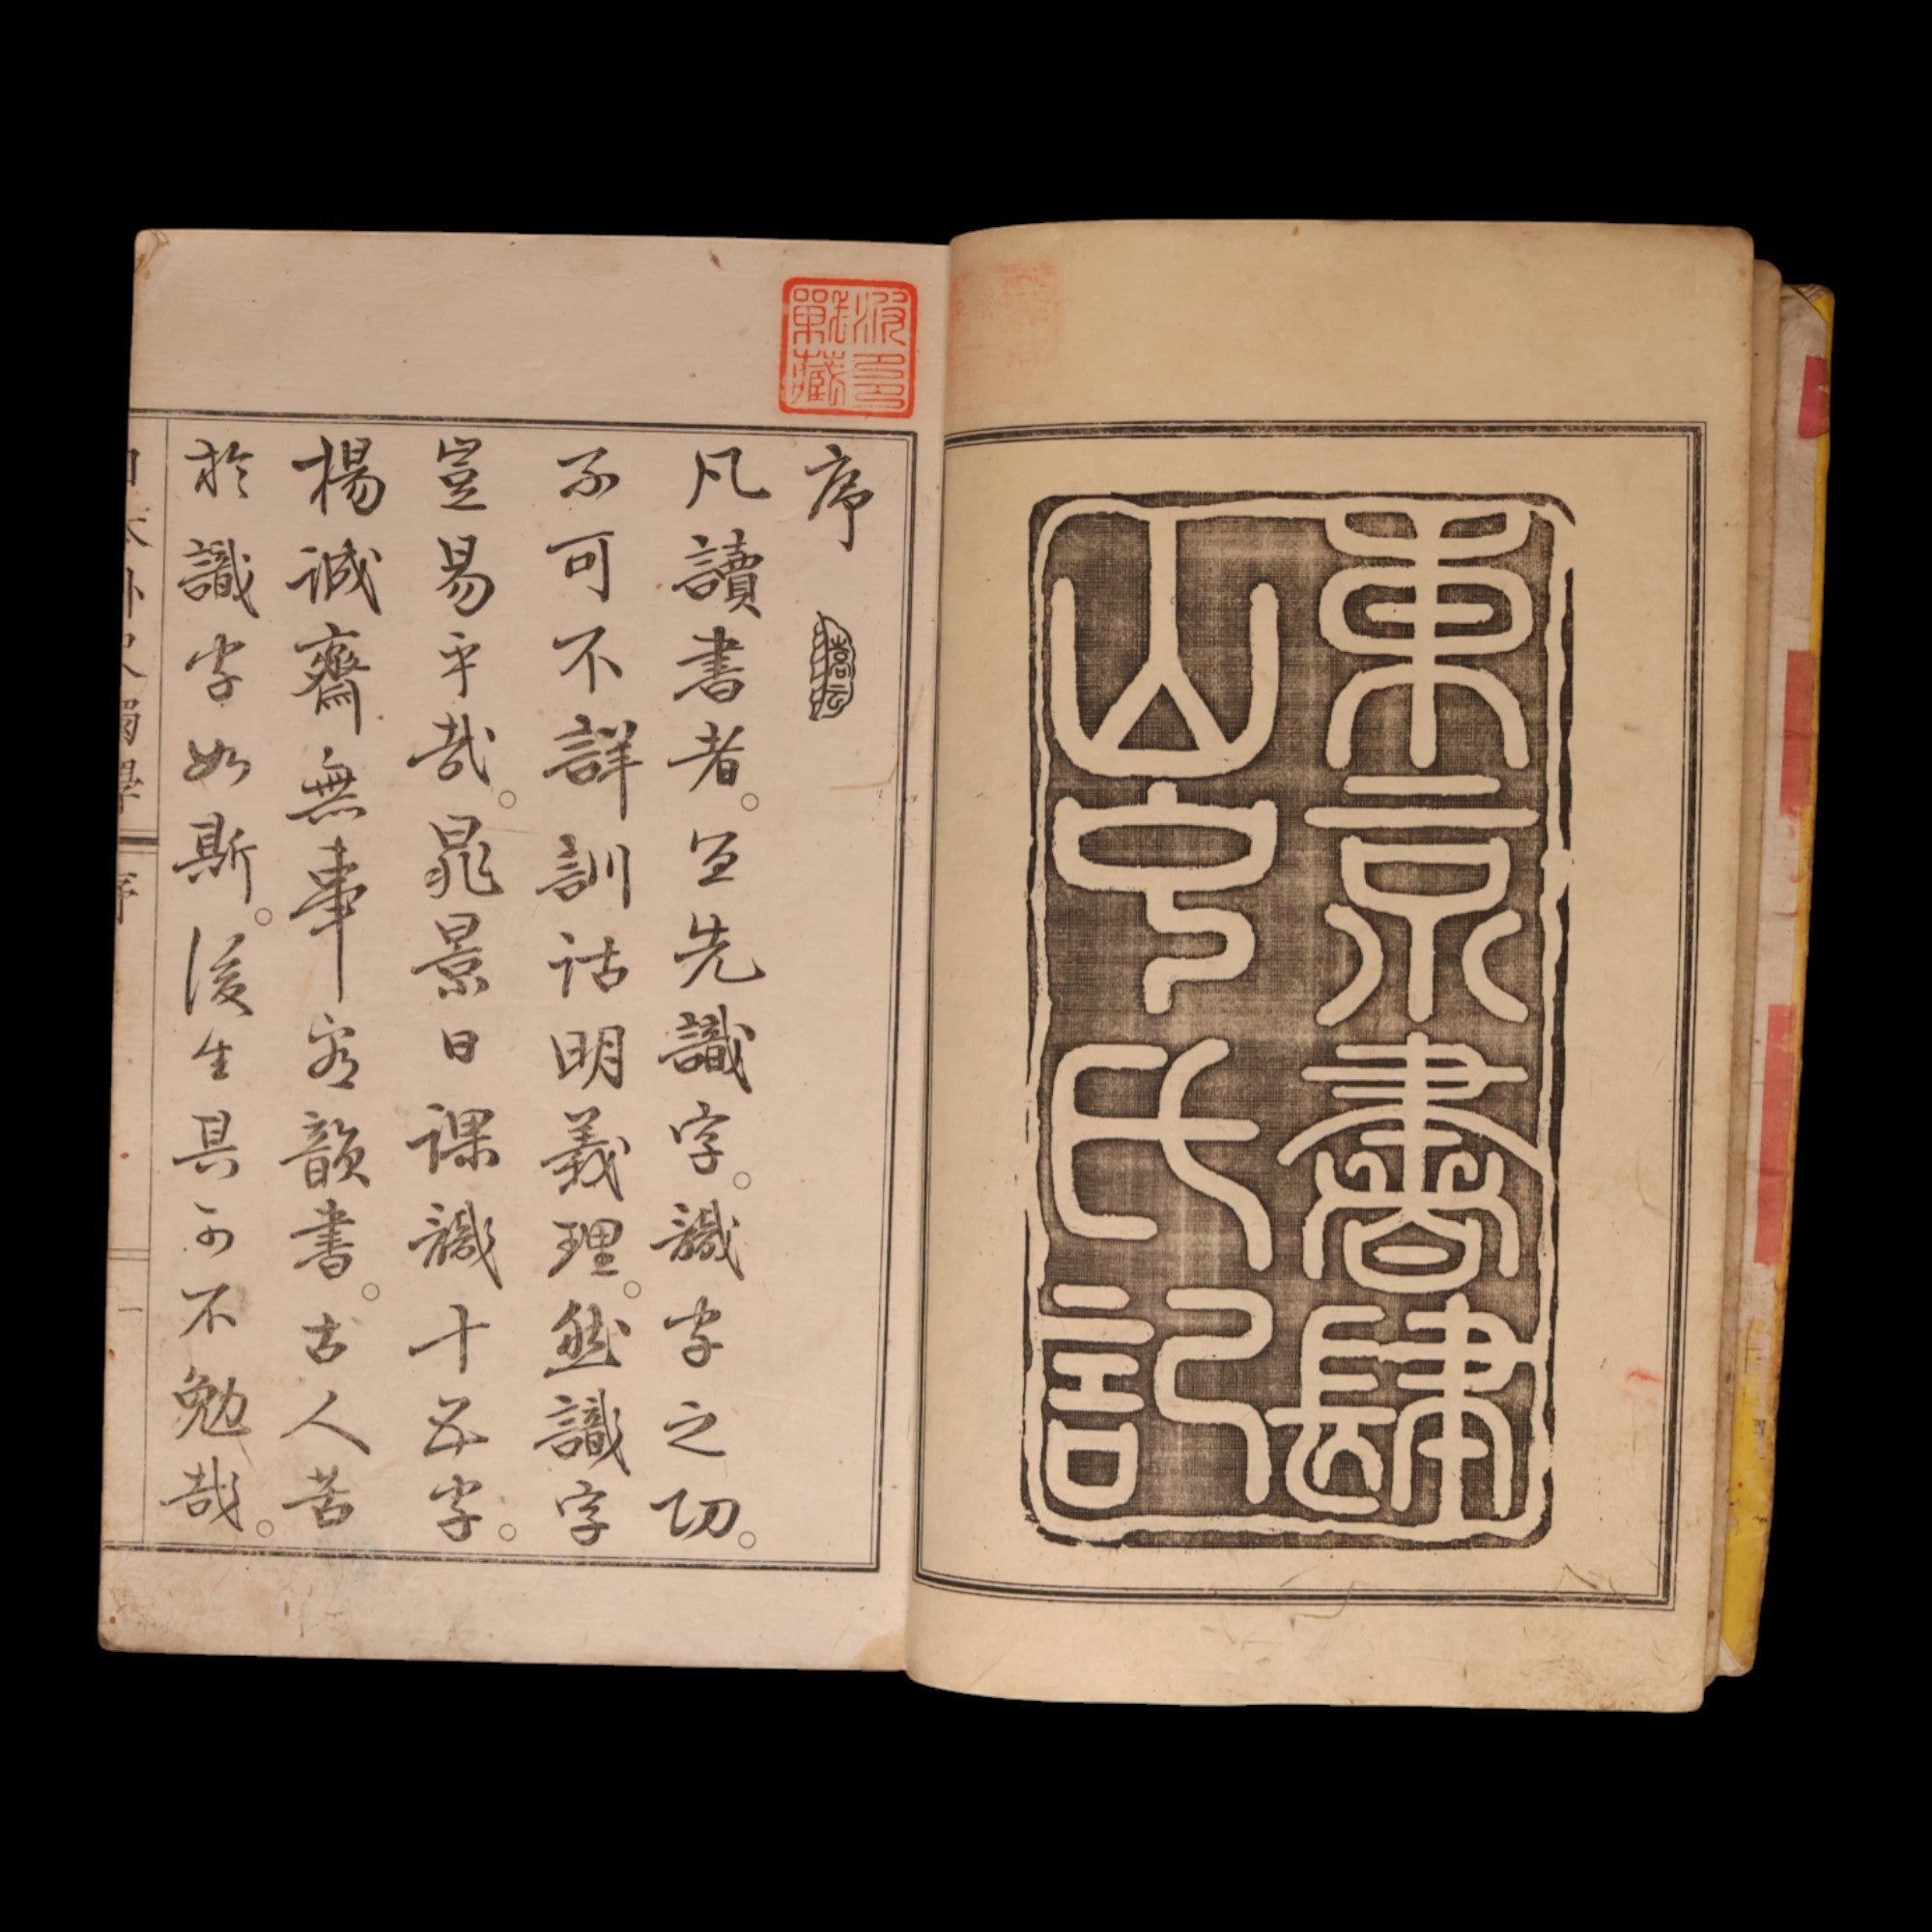 東京書肆
山中氏記
序
凡讀書者。宜先識字。識字之功。
不可不詳訓詁明義理。然識字
豈易乎哉。晁景日課識十五字。
楊誠齋無事看韻書。古人苦
於識字如斯。後生其可不勉哉。
日本外史獨學
序
一